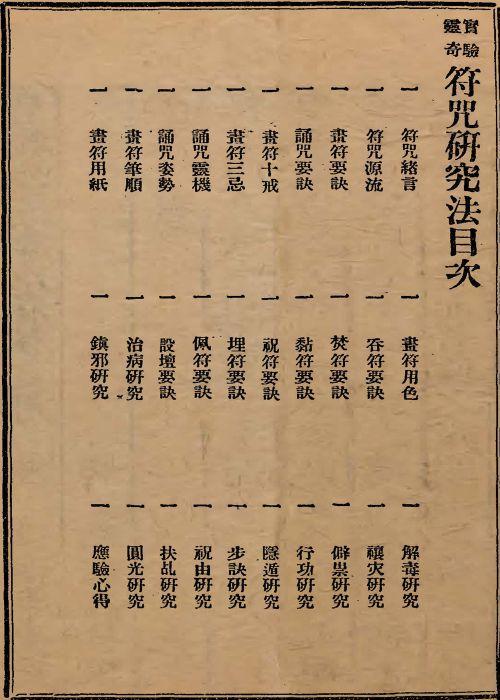 實驗靈奇
符咒研究法目次
一 符咒緒言
一 符咒源流
一 畫符要訣
一 誦咒要訣
一 畫符十戒
一 畫符三忌
一 誦咒靈機
一 誦咒姿勢
一 畫符筆順
一 畫符用紙
一 畫符用色
一 吞符要訣
一 焚符要訣
一 黏符要訣
一 祝符要訣
一 埋符要訣
一 佩符要訣
一 設壇要訣
一 治病研究
一 鎭邪研究
一 解毒研究
一 禳灾研究
一 僻祟研究
一 行功研究
一 隱遁研究
一 步訣研究
一 祝由研究
一 扶乩研究
一 圓光研究
一 應驗心得